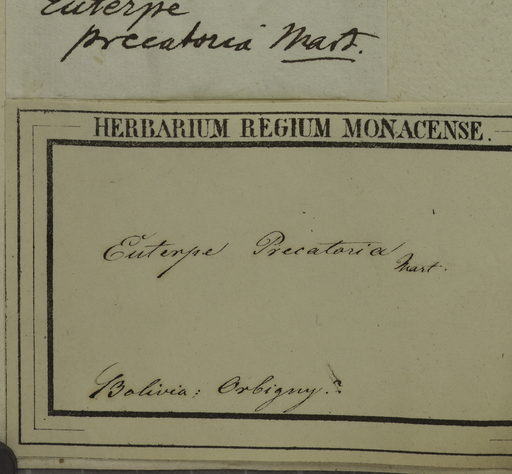 Euterpe
precatoria Mart.
HERBARIUM REGIUM MONACENSE.
Euterpe Precatoria
Mart.
Bolivia: Orbigny.